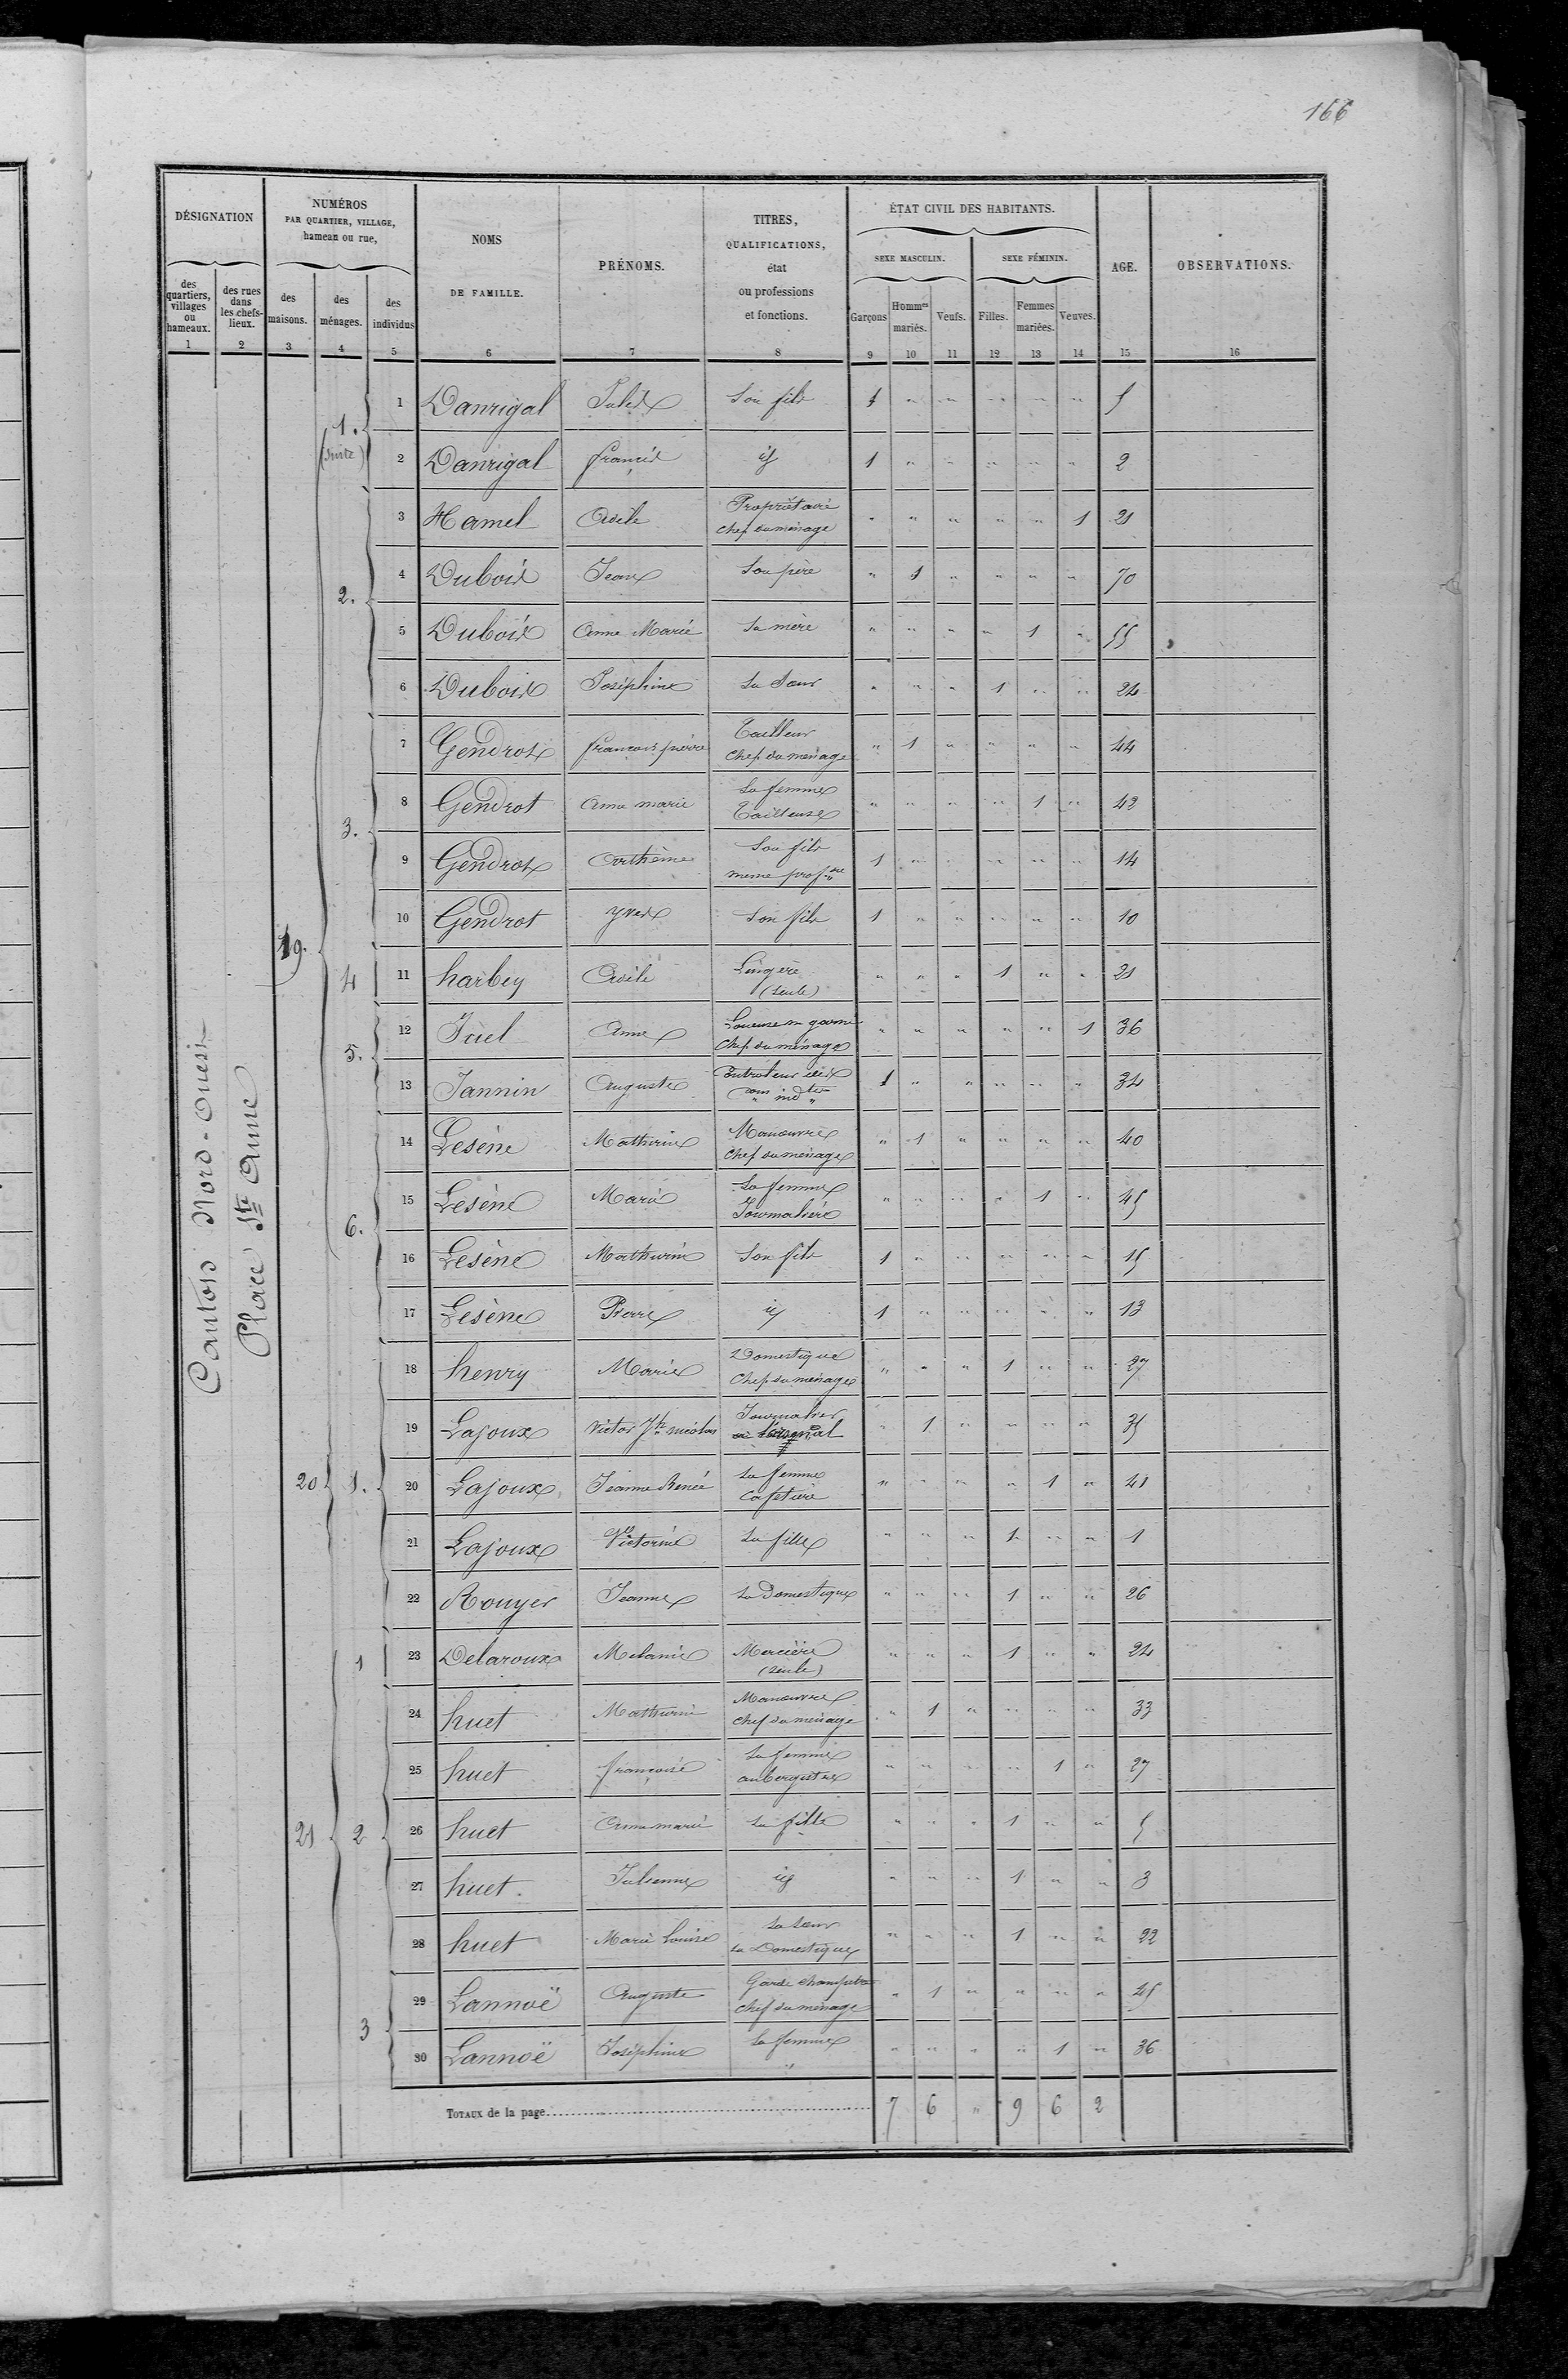 166
DÉSIGNATION
NUMÉROS
PAR QUARTIER, VILLAGE,
hameau ou rue,
NOMS
DE FAMILLE.
PRÉNOMS.
TITRES,
QUALIFICATIONS,
état
ou professions
et fonctions.
ÉTAT CIVIL DES HABITANTS.
SEXE MASCULIN.
SEXE FÉMININ.
AGE.
OBSERVATIONS.
des quartiers, villages ou hameaux.
des rues dans les chefs-lieux.
des maisons.
des ménages.
des individus
Garçons
Hommes mariés.
Veufs.
Filles.
Femmes mariées.
Veuves.
1 2 3 4 5 6 7 8 9 10 11 12 13 14 15 16
Canton Nord-Ouest
Place Ste Anne
19.
1. (suite)
1 Danrigal Jules Son fils 1 " " " " " 5
2 Danrigal francis id 1 " " " " " 2
2.
3 Hamel Adèle Propriétaire Chef du ménage " " " " " 1 21
4 Dubois Jean Son père " 1 " " " " 70
5 Dubois Anne Marie Sa mère " " " " 1 " 55
6 Dubois Joséphine Sa Sœur " " " 1 " " 24
3.
7 Gendrot francois pierre Tailleur Chef du ménage " 1 " " " " 44
8 Gendrot Anne marie Sa femme Tailleuse " " " " 1 " 42
9 Gendrot Arthème Son fils meme profon 1 " " " " 14
10 Gendrot Yves Son fils 1 " " " " " 10
4
11 harbey Adèle Lingère (seule) " " " 1 " " 21
5.
12 Juel Anne Loueuse en garni Chef du ménage " " " " " 1 36
13 Jannin Auguste 1 " " " " " 34
6.
14 Lesène Mathurin Manœuvre Chef du ménage " 1 " " " " 40
15 Lesène Marie Sa femme Journalière " " " " 1 " 45
16 Lesène Mathurin Son fils 1 " " " " " 15
17 Lesène Pierre id 1 " " " " " 13
20 1.
18 henry Marie Domestique Chef du ménage " " " 1 " " 27
19 Lajoux Victor Jh nicolas Journalier à l'arsenal " 1 " " " " 35
20 Lajoux Jeanne Renée Sa femme Cafetière " " " " 1 " 41
21 Lajoux Victorine Sa fille " " " 1 " " 1
22 Rouyer Jeanne Sa Domestique " " " 1 " " 26
21
1
23 Delaroux Melanie Mercière (seule) " " " 1 " " 24
2
24 huet Mathurin Manœuvre Chef du ménage " 1 " " " " 33
25 huet françoise Sa femme aubergiste " " " " 1 " 27
26 huet Anne marie Sa fille " " " 1 " " 5
27 huet. Julienne id " " " 1 " " 3
28 huet Marie Louise Sa sœur sa Domestique " " " 1 " " 22
3
29 Lannoë Auguste Garde champetre chef du ménage " 1 " " " " 45
30 Lannoë Joséphine Sa femme " " " " " 1 " 36
TOTAUX de la page 7 6 " 9 6 2